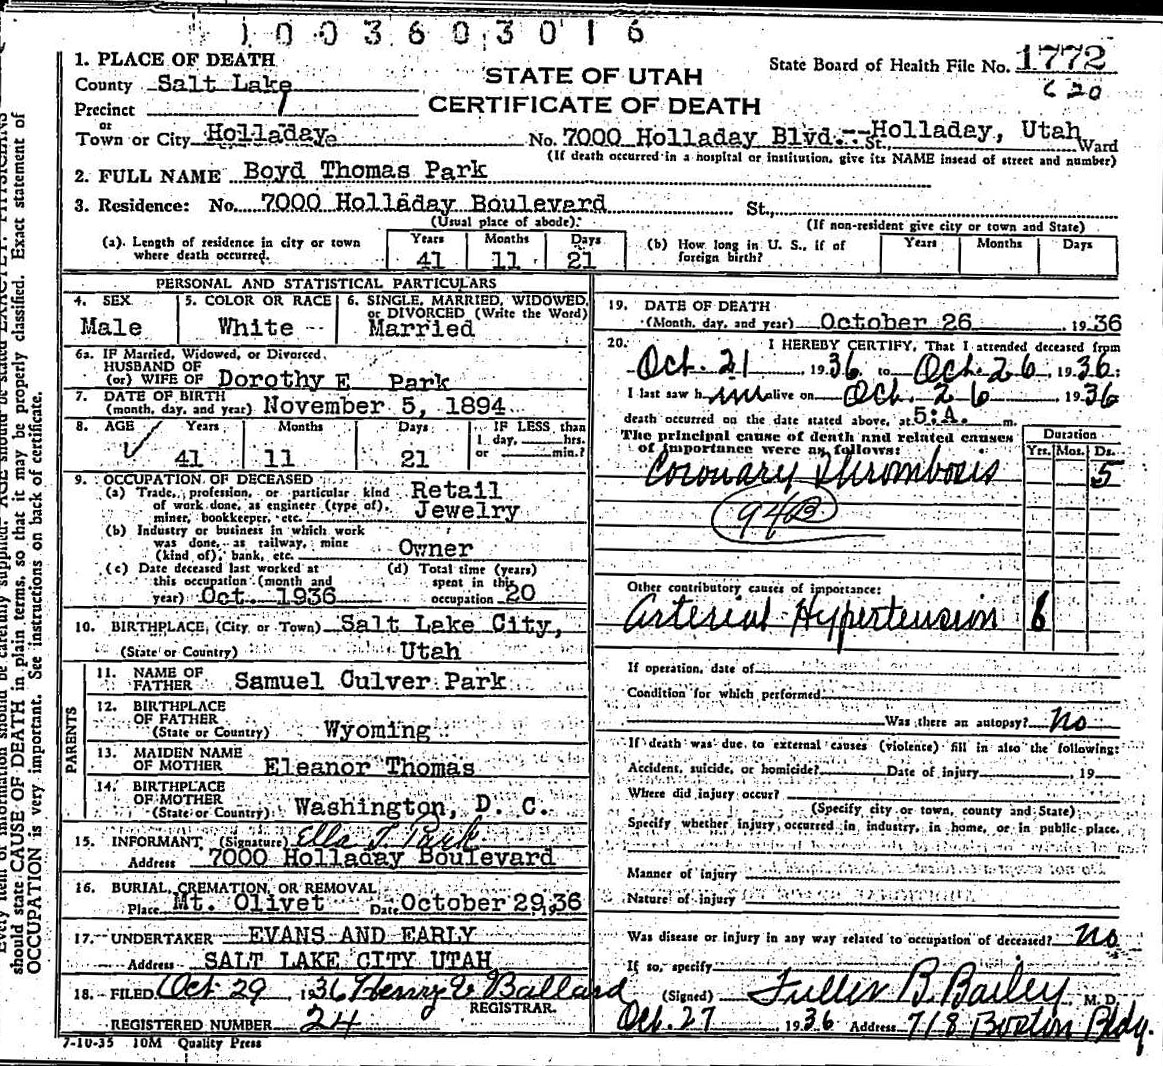 1003603016
1. PLACE OF DEATH
County Salt Lake
Precinct 1
or
Town or City Holladay
STATE OF UTAH
CERTIFICATE OF DEATH
State Board of Health File No. 1772
620
No. 7000 Holladay Blvd. -- St., Holladay, Utah Ward
(If death occurred in a hospital or institution, give its NAME insead of street and number)
2. FULL NAME Boyd Thomas Park
3. Residence: No. 7000 Holladay Boulevard St.,
(Usual place of abode) (If non-resident give city or town and State)
(a). Length of residence in city or town where death occurred. Years 41 Months 11 Days 21
(b) How long in U. S., if of foreign birth? Years Months Days
PERSONAL AND STATISTICAL PARTICULARS
4. SEX Male
5. COLOR OR RACE White
6. SINGLE, MARRIED, WIDOWED, or DIVORCED (Write the Word) Married
6a. IF Married, Widowed, or Divorced,
HUSBAND OF
(or) WIFE OF Dorothy E Park
7. DATE OF BIRTH
(month, day, and year) November 5, 1894
8. AGE Years 41 Months 11 Days 21
IF LESS than
1 day, hrs.
or min.?
9. OCCUPATION OF DECEASED
(a) Trade, profession, or particular kind Retail
of work done, as engineer (type of), Jewelry
miner, bookkeeper, etc.
(b) Industry or business in which work
was done, as railway, mine
(kind of), bank, etc. Owner
(c) Date deceased last worked at
this occupation (month and
year) Oct. 1936
(d) Total time (years)
spent in this
occupation 20
10. BIRTHPLACE, (City or Town) Salt Lake City,
(State or Country) Utah
PARENTS
11. NAME OF
FATHER Samuel Culver Park
12. BIRTHPLACE
OF FATHER
(State or Country) Wyoming
13. MAIDEN NAME
OF MOTHER Eleanor Thomas
14. BIRTHPLACE
OF MOTHER
(State or Country) Washington, D. C.
15. INFORMANT, (Signature) Ella T. Park
Address 7000 Holladay Boulevard
16. BURIAL, CREMATION, OR REMOVAL
Place Mt. Olivet Date October 29, 1936
17. UNDERTAKER EVANS AND EARLY
Address SALT LAKE CITY UTAH
18. FILED Oct 29 1936 Henry V Ballard
REGISTRAR.
REGISTERED NUMBER 24
7-10-35 10M Quality Press
19. DATE OF DEATH
(Month, day, and year) October 26, 1936
20. I HEREBY CERTIFY, That I attended deceased from
Oct. 21 1936 to Oct. 26, 1936;
I last saw him alive on Oct. 26 1936
death occurred on the date stated above, at 5:A. m.
The principal cause of death and related causes
of importance were as follows:
Duration
Yrs. Mos. Ds.
Coronary Thrombosis 5
94B
Other contributory causes of importance:
Arterial Hypertension 6
If operation, date of
Condition for which performed
Was there an autopsy? No
If death was due to external causes (violence) fill in also the following:
Accident, suicide, or homicide? Date of injury , 19
Where did injury occur?
(Specify city or town, county and State)
Specify whether injury occurred in industry, in home, or in public place.
Manner of injury
Nature of injury
Was disease or injury in any way related to occupation of deceased? No
If so, specify
(Signed) Fuller B. Bailey M. D.
Oct. 27 1936 Address 718 Boston Bldg.
should state CAUSE OF DEATH in plain terms, so that it may be properly classified. Exact statement of
OCCUPATION is very important. See instructions on back of certificate.